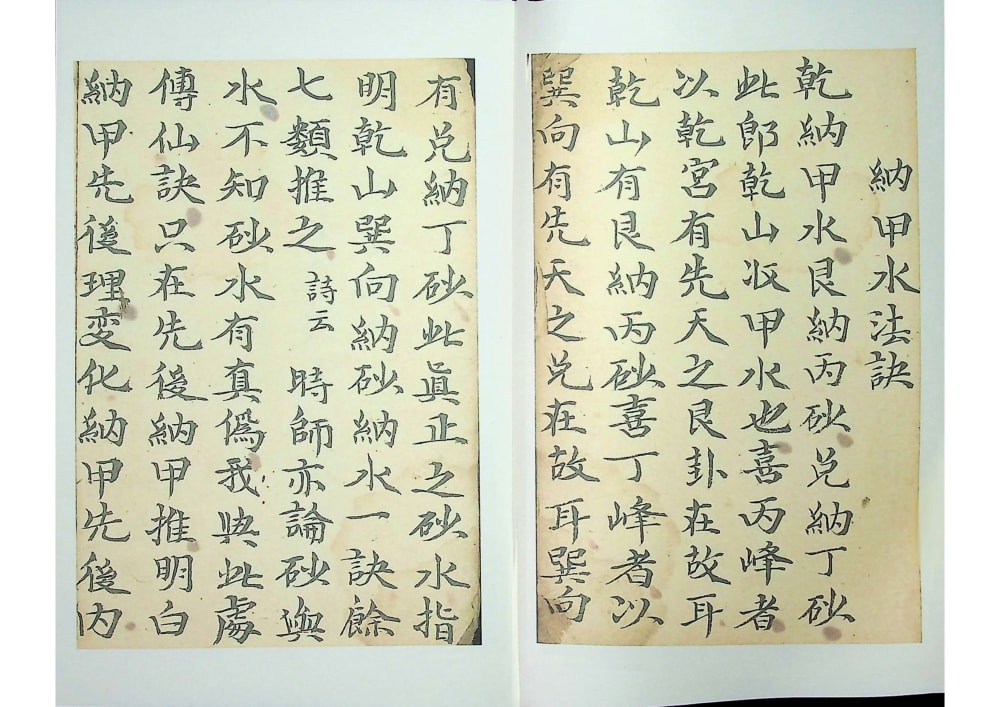 納甲水法訣
乾納甲水艮納丙砂兌納丁砂
此郎乾山収甲水也喜丙峰者
以乾宮有先天之艮卦在故耳
乾山有艮納丙砂喜丁峰者以
巽向有先天之兌在故耳巽向
有兌納丁砂此眞正之砂水指
明乾山巽向納砂納水一訣餘
七類推之 詩云 時師亦論砂與
水不知砂水有真僞我與此處
傳仙訣只在先後納甲推明白
納甲先後理変化納甲先後内